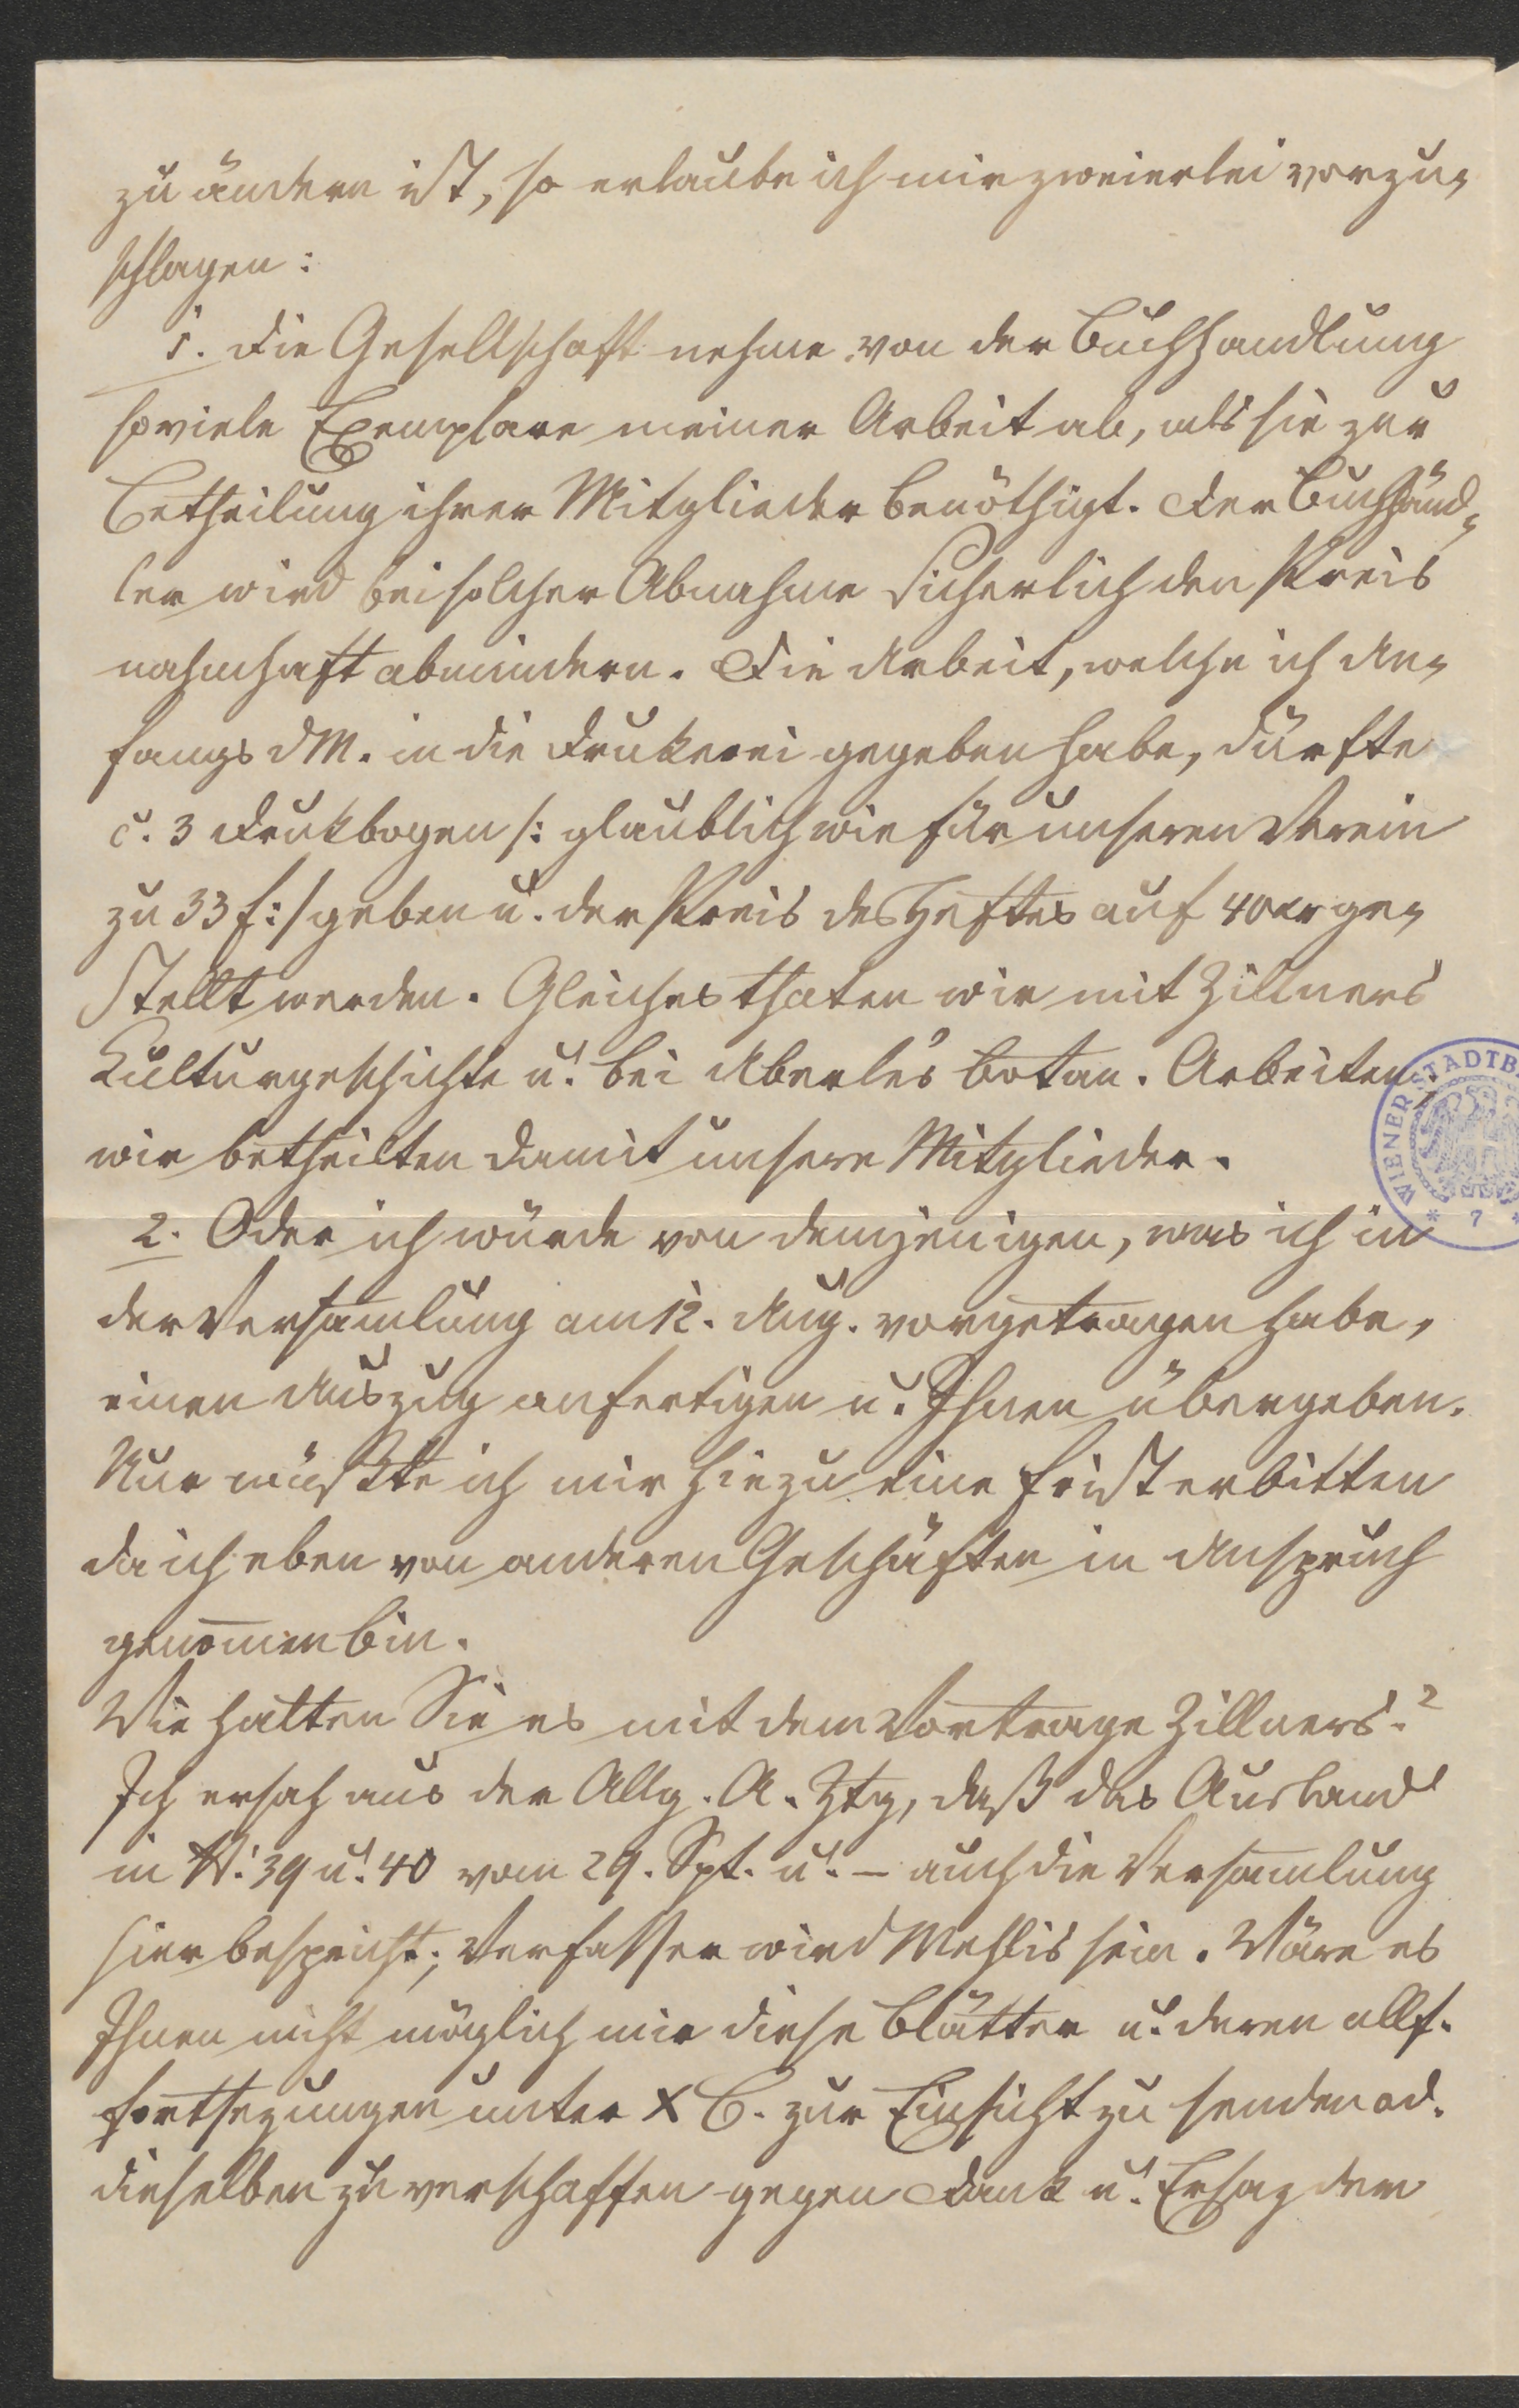 zu ändern ist, so erlaube ich mir zweierlei vorzu-
schlagen:
1. Die Gesellschaft nehme von der Buchhandlung
soviele Exemplare meiner Arbeit ab, als sie zur
Betheilung ihrer Mitglieder benöthigt. Der Buchhänd-
ler wird bei solcher Abnahme sicherlich den Preis
nahmhaft abmindern. Die Arbeit, welche ich An-
fangs dM. in die Drukerei gegeben habe, dürfte
c. 3 Drukbogen /: glaublich wie für unseren Verein
zu 33 f :/ geben u. der Preis des Heftes auf 40 xr ge-
stellt werden. Gleiches thaten wir mit Zillners
Kulturgeschichte u. bei Aberle's botan. Arbeiten,
wir betheilten damit unsere Mitglieder.
2. Oder ich würde von demjenigen, was ich in
der Versam̅lung am 12. Aug. vorgetragen habe,
einen Auszug anfertigen u. Ihnen übergeben.
Nur müßte ich mir hiezu eine Frist erbitten
da ich eben von anderen Geschäften in Anspruch
genom̅en bin.
Wie halten Sie es mit dem Vortrage Zillners?
Ich ersah aus der Allg. A. Ztg, daß das Ausland
in N. 39 u. 40 vom 29. Spt. u. – auch die Versam̅lung
hier bespricht; Verfasser wird Mehlis sein. Wäre es
Ihnen nicht möglich mir diese Blätter u. deren allf.
Fortsezungen unter X B. zur Einsicht zu senden od.
dieselben zu verschaffen gegen Dank u. Ersaz der
WIENER STADTB
* 7 *